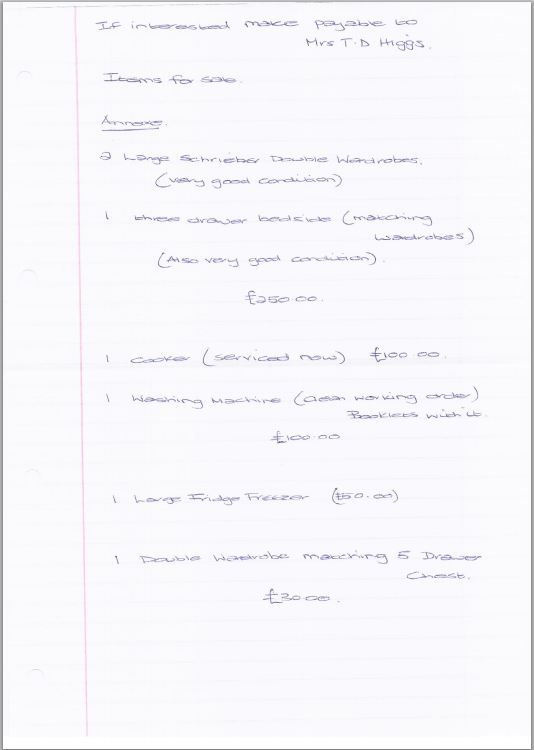 If interested make payable to
Mrs T.D Higgs.
Items for sale.
Annexe.
2 Large Schrieber Double Wardrobes.
(very good condition)
1 three drawer bedside (matching
wardrobes)
(Also very good condition).
£250.00.
1 Cooker (serviced now) £100.00.
1 Washing Machine (Clean working order)
Booklets with it.
£100.00
1 Large Fridge Freezer (£50.00)
1 Double Wardrobe matching 5 Drawer
Chest.
£30.00.